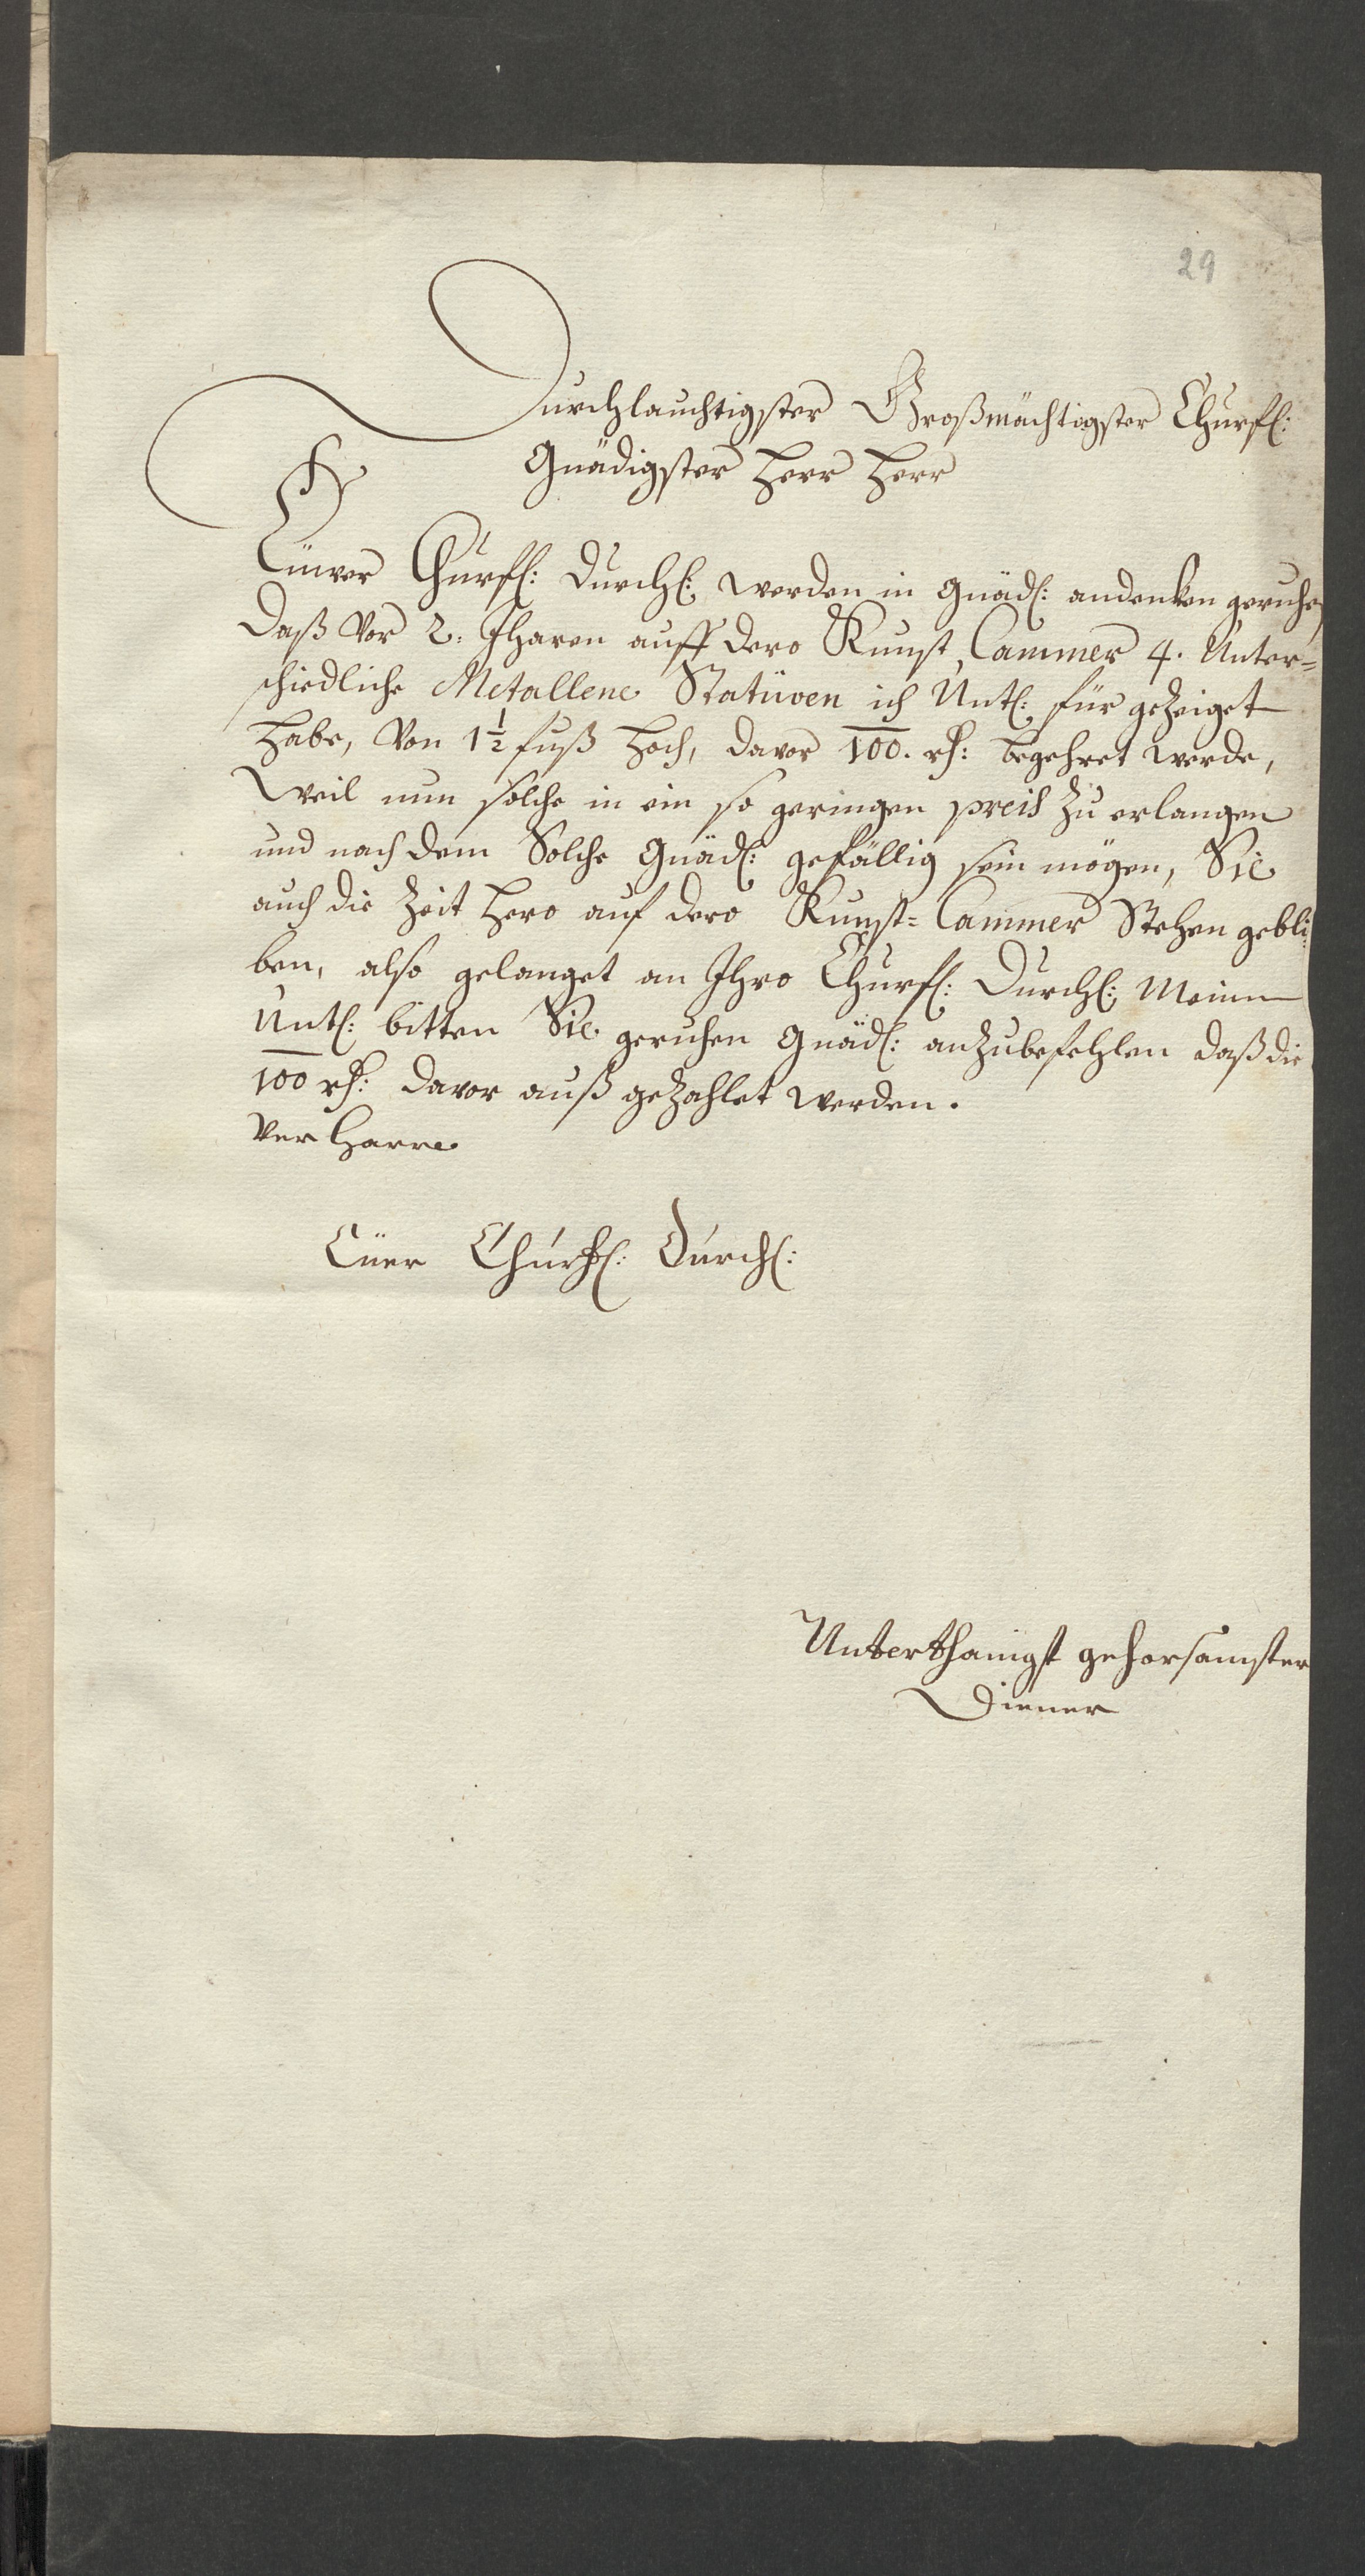 29
Durchlauchtigster Großmächtigster Churfl:
Gnädigster Herr Herr
Eüwer Churfl: Durchl: werden in Gnädl: andenken geruhen
Daß Vor 2. Jharen auff dero Kunst Cammer 4. Unter=
schiedliche Metallene Statüven ich Untl: für gezeiget
habe, Von 1 1/2 fuß hoch, davor 100. rh: begehret werde,
Weil nun solche in ein so geringen preis zu erlangen
und nach dem Solche Gnädl: gefällig sein mögen, Sie
auch die Zeit hero auf dero Kunst= Cammer Stehen gebli
ben, also gelanget an Ihro Churfl: Durchl: Meinn
Untl: bitten Sie geruhen Gnädl: anzubefehlen daß die
100 rh: davor auß gezahlet werden.
Ver harre
Eüer Churfl: Durchl:
Unterthänigst gehorsamster
Diener